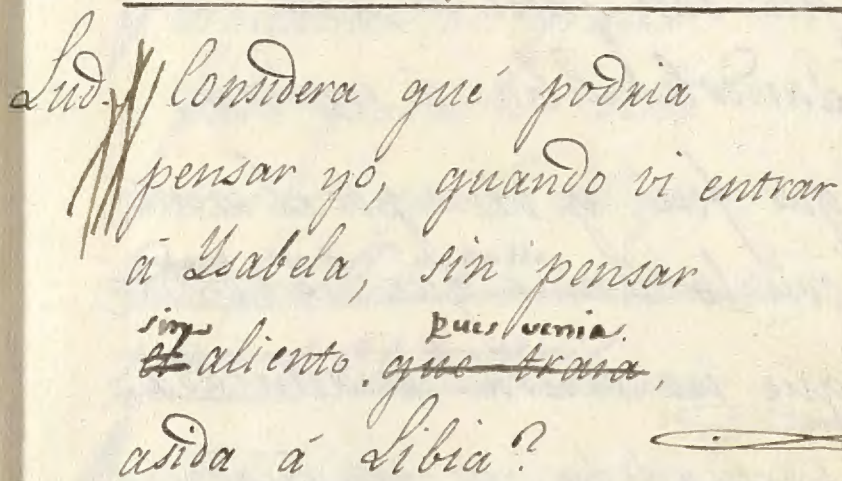 Lud. Considera qué podria
pensar yo, quando vi entrar
á Ysabela, sin pensar
sin pues venia.
el aliento, que traia,
asida á Libia?